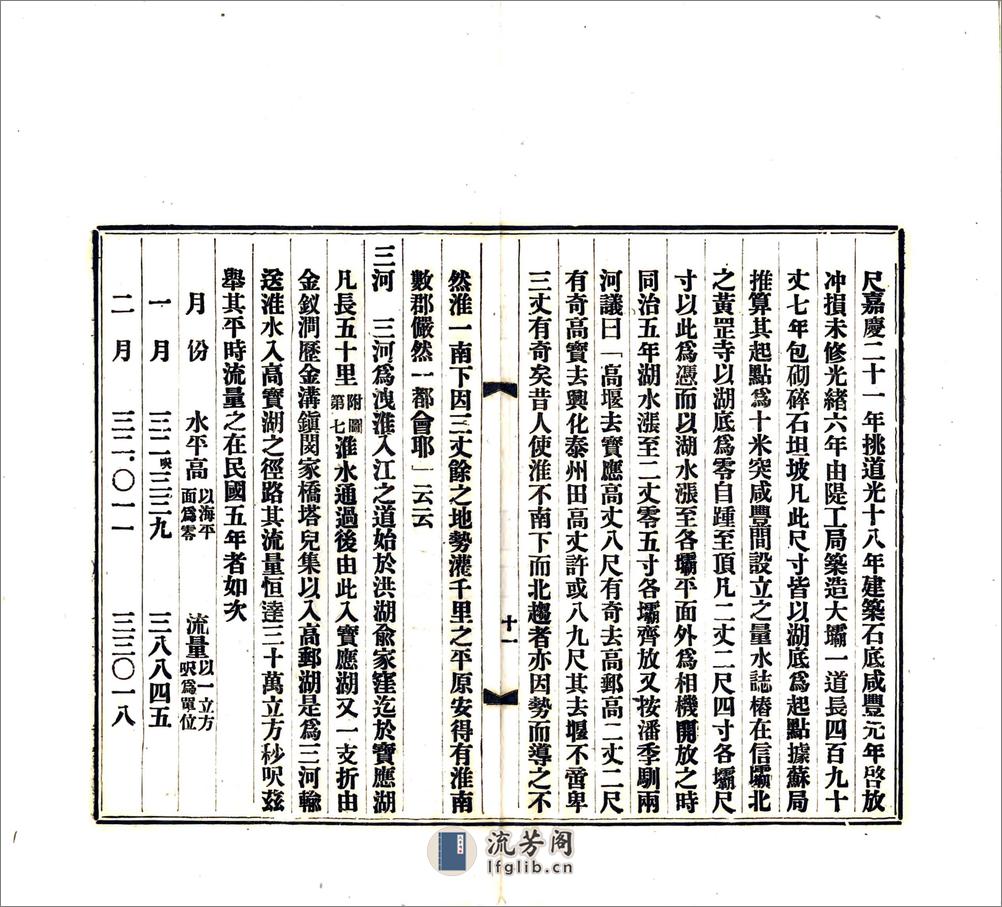 尺嘉慶二十一年挑道光十八年建築石底咸豐元年啓放
冲損未修光緒六年由隄工局築造大壩一道長四百九十
丈七年包砌碎石坦坡凡此尺寸皆以湖底爲起點據蘇局
推算其起點爲十米突咸豐間設立之量水誌樁在信壩北
之黃罡寺以湖底爲零自踵至頂凡二丈二尺四寸各壩尺
寸以此爲憑而以湖水漲至各壩平面外爲相機開放之時
同治五年湖水漲至二丈零五寸各壩齊放又按潘季馴兩
河議曰「高堰去寶應高丈八尺有奇去高郵高二丈二尺
有奇高寶去興化泰州田高丈許或八九尺其去堰不啻卑
三丈有奇矣昔人使淮不南下而北趨者亦因勢而導之不
十一
然淮一南下因三丈餘之地勢灌千里之平原安得有淮南
數郡儼然一都會耶」云云
三河　三河爲洩淮入江之道始於洪湖兪家窪迄於寶應湖
凡長五十里附圖第七淮水通過後由此入寶應湖又一支折由
金釵澗歷金溝鎮閔家橋塔兒集以入高郵湖是爲三河輸
送淮水入高寶湖之徑路其流量恒達三十萬立方秒呎茲
舉其平時流量之在民國五年者如次
月　份　水平高以海平面爲零　流量以一立方呎爲單位
一　月　三二呎三二九　三八八四五
二　月　三二·〇一一　三三〇一八
流芳阁
lfglib.cn